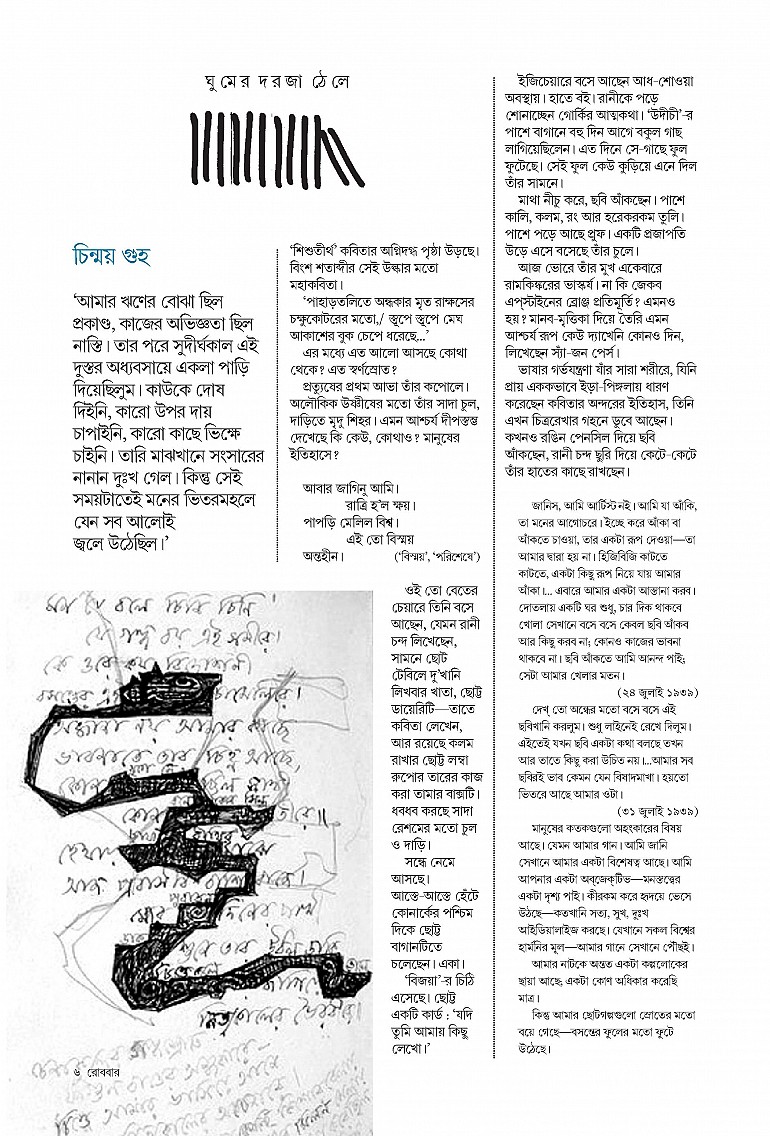 ঘুমের দরজা ঠেলে
চিন্ময় গুহ
‘আমার ঋণের বোঝা ছিল
প্রকাণ্ড, কাজের অভিজ্ঞতা ছিল
নাস্তি। তার পরে সুদীর্ঘকাল এই
দুস্তর অধ্যবসায়ে একলা পাড়ি
দিয়েছিলুম। কাউকে দোষ
দিইনি, কারো উপর দায়
চাপাইনি, কারো কাছে ভিক্ষে
চাইনি। তারি মাঝখানে সংসারের
নানান দুঃখ গেল। কিন্তু সেই
সময়টাতেই মনের ভিতরমহলে
যেন সব আলোই
জ্বলে উঠেছিল।’
‘শিশুতীর্থ’ কবিতার অগ্নিদগ্ধ পৃষ্ঠা উড়ছে।
বিংশ শতাব্দীর সেই উল্কার মতো
মহাকবিতা।
‘পাহাড়তলিতে অন্ধকার মৃত রাক্ষসের
চক্ষুকোটরের মতো,/ স্তূপে স্তূপে মেঘ
আকাশের বুক চেপে ধরেছে...’
এর মধ্যে এত আলো আসছে কোথা
থেকে? এত স্বর্ণস্রোত?
প্রত্যুষের প্রথম আভা তাঁর কপোলে।
অলৌকিক উষ্ণীষের মতো তাঁর সাদা চুল,
দাড়িতে মৃদু শিহর। এমন আশ্চর্য দীপস্তম্ভ
দেখেছে কি কেউ, কোথাও? মানুষের
ইতিহাসে?
আবার জাগিনু আমি।
রাত্রি হ’ল ক্ষয়।
পাপড়ি মেলিল বিশ্ব।
এই তো বিস্ময়
অন্তহীন। (‘বিস্ময়’, ‘পরিশেষে’)
ওই তো বেতের
চেয়ারে তিনি বসে
আছেন, যেমন রানী
চন্দ লিখেছেন,
সামনে ছোট
টেবিলে দু’খানি
লিখবার খাতা, ছোট্ট
ডায়েরিটি—তাতে
কবিতা লেখেন,
আর রয়েছে কলম
রাখার ছোট্ট লম্বা
রুপোর তারের কাজ
করা তামার বাক্সটি।
ধবধব করছে সাদা
রেশমের মতো চুল
ও দাড়ি।
সন্ধে নেমে
আসছে।
আস্তে-আস্তে হেঁটে
কোনার্কের পশ্চিম
দিকে ছোট্ট
বাগানটিতে
চলেছেন। একা।
‘বিজয়া’-র চিঠি
এসেছে। ছোট্ট
একটি কার্ড : ‘যদি
তুমি আমায় কিছু
লেখো।’
ইজিচেয়ারে বসে আছেন আধ-শোওয়া
অবস্থায়। হাতে বই। রানীকে পড়ে
শোনাচ্ছেন গোর্কির আত্মকথা। ‘উদীচী’-র
পাশে বাগানে বহু দিন আগে বকুল গাছ
লাগিয়েছিলেন। এত দিনে সে-গাছে ফুল
ফুটেছে। সেই ফুল কেউ কুড়িয়ে এনে দিল
তাঁর সামনে।
মাথা নীচু করে, ছবি আঁকছেন। পাশে
কালি, কলম, রং আর হরেকরকম তুলি।
পাশে পড়ে আছে প্রুফ। একটি প্রজাপতি
উড়ে এসে বসেছে তাঁর চুলে।
আজ ভোরে তাঁর মুখ একেবারে
রামকিঙ্করের ভাস্কর্য। না কি জেকব
এপ্‌স্টাইনের ব্রোঞ্জ প্রতিমূর্তি? এমনও
হয়? মানব-মৃত্তিকা দিয়ে তৈরি এমন
আশ্চর্য রূপ কেউ দ্যাখেনি কোনও দিন,
লিখেছেন স্যাঁ-জন পের্স।
ভাষার গর্ভযন্ত্রণা যাঁর সারা শরীরে, যিনি
প্রায় এককভাবে ইড়া-পিঙ্গলায় ধারণ
করেছেন কবিতার অন্দরের ইতিহাস, তিনি
এখন চিত্ররেখার গহনে ডুবে আছেন।
কখনও রঙিন পেনসিল দিয়ে ছবি
আঁকছেন, রানী চন্দ ছুরি দিয়ে কেটে-কেটে
তাঁর হাতের কাছে রাখছেন।
জানিস, আমি আর্টিস্ট নই। আমি যা আঁকি,
তা মনের আগোচরে। ইচ্ছে করে আঁকা বা
আঁকতে চাওয়া, তার একটা রূপ দেওয়া—তা
আমার দ্বারা হয় না। হিজিবিজি কাটতে
কাটতে, একটা কিছু রূপ নিয়ে যায় আমার
আঁকা।... এবারে আমার একটা আস্তানা করব।
দোতলায় একটি ঘর শুধু, চার দিক থাকবে
খোলা সেখানে বসে বসে কেবল ছবি আঁকব
আর কিছু করব না; কোনও কাজের ভাবনা
থাকবে না। ছবি আঁকতে আমি আনন্দ পাই;
সেটা আমার খেলার মতন।
(২৪ জুলাই ১৯৩৯)
দেখ্ তো অন্ধের মতো বসে বসে এই
ছবিখানি করলুম। শুধু লাইনেই রেখে দিলুম।
এইতেই যখন ছবি একটা কথা বলছে তখন
আর তাতে কিছু করা উচিত নয়।...আমার সব
ছবিরই ভাব কেমন যেন বিষাদমাখা। হয়তো
ভিতরে আছে আমার ওটা।
(৩১ জুলাই ১৯৩৯)
মানুষের কতকগুলো অহংকারের বিষয়
আছে। যেমন আমার গান। আমি জানি
সেখানে আমার একটা বিশেষত্ব আছে। আমি
আপনার একটা অব্‌জেক্‌টিভ—মনস্তত্ত্বের
একটা দৃশ্য পাই। কীরকম করে হৃদয়ে ভেসে
উঠছে—কতখানি সত্য, সুখ, দুঃখ
আইডিয়ালাইজ করছে। যেখানে সকল বিশ্বের
হার্মনির মূল—আমার গানে সেখানে পৌঁছই।
আমার নাটকে অন্তত একটা কল্পলোকের
ছায়া আছে, একটা কোণ অধিকার করেছি
মাত্র।
কিন্তু আমার ছোটগল্পগুলো স্রোতের মতো
বয়ে গেছে—বসন্তের ফুলের মতো ফুটে
উঠেছে।
৬ রোববার